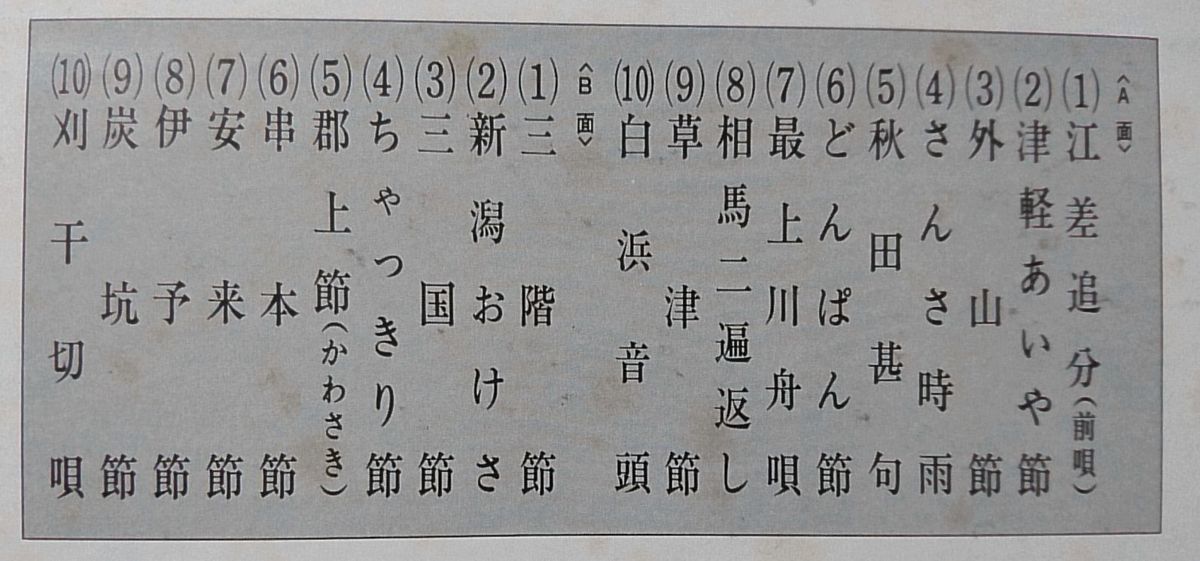 〈A面〉
(1)江差追分(前唄)
(2)津軽あいや節
(3)外山節
(4)さんさ時雨
(5)秋田甚句
(6)どんぱん節
(7)最上川舟唄
(8)相馬二遍返し
(9)草津節
(10)白浜音頭
〈B面〉
(1)三階節
(2)新潟おけさ
(3)三国節
(4)ちゃっきり節
(5)郡上節(かわさき)
(6)串本節
(7)安来節
(8)伊予節
(9)炭坑節
(10)刈干切唄